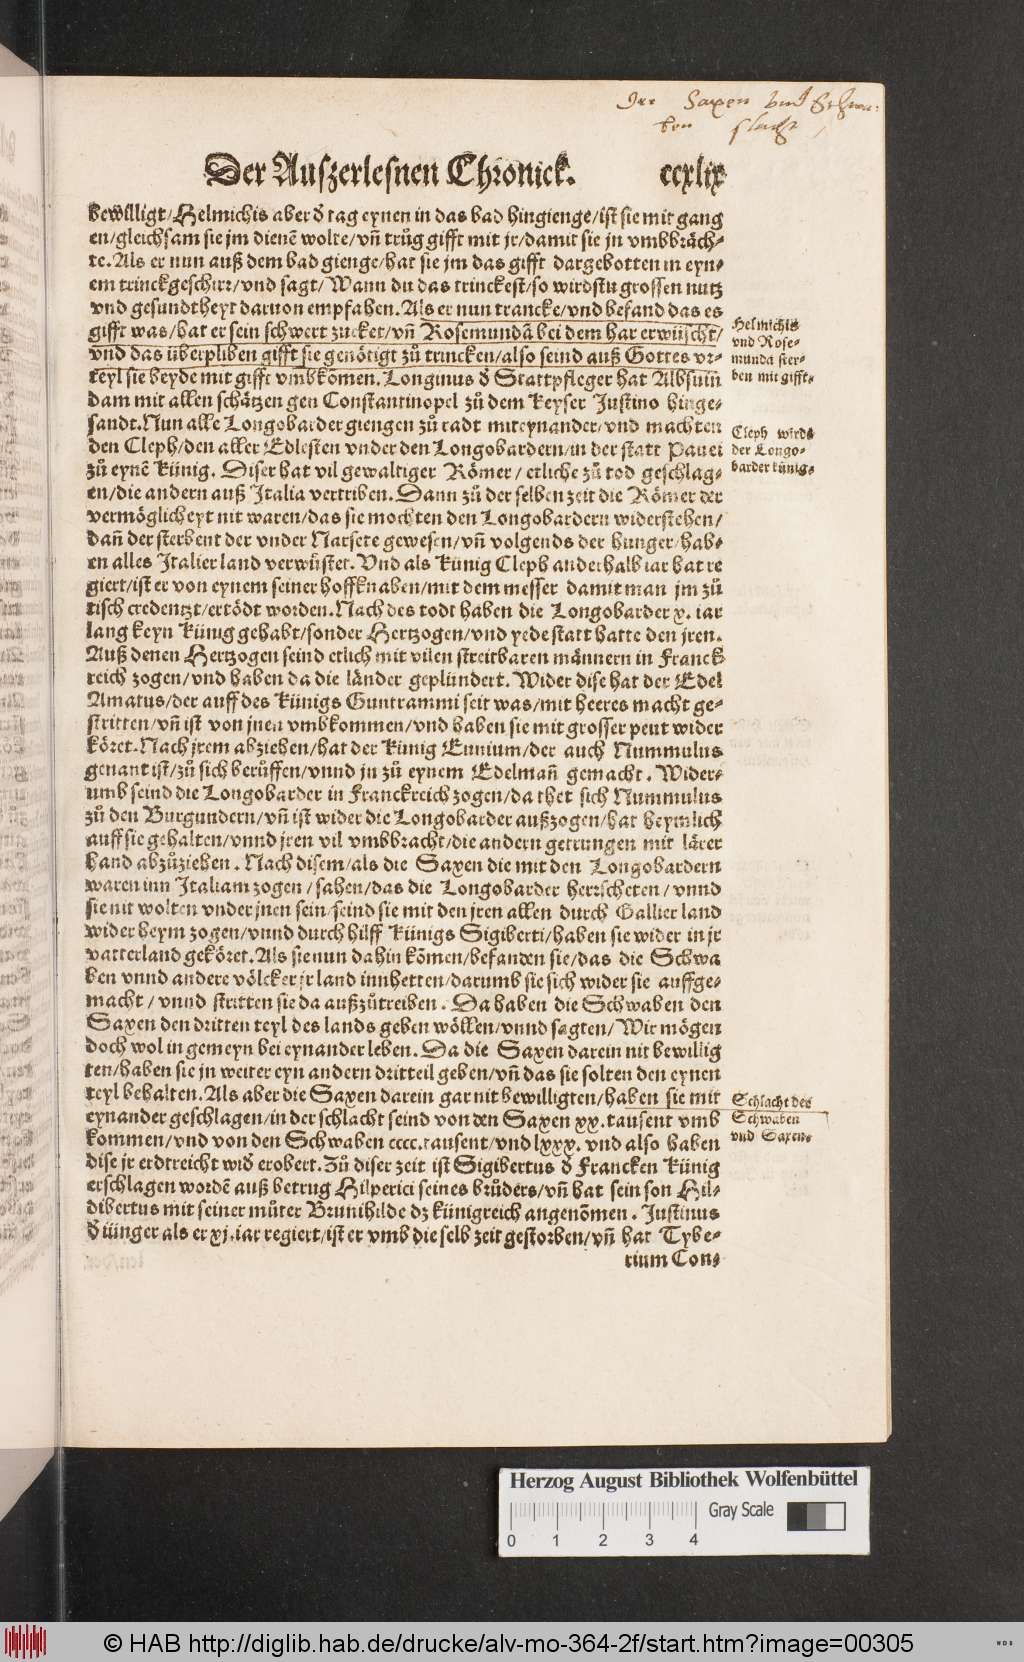 Der Saxen vnd Schwa-
ben slacht
Der Auszerlesnen Chronick. ccxlix
bewilligt/Helmichis aber ð tag eynen in das bad hingienge/ist sie mit gang
en/gleichsam sie jm dienē wolte/vñ trůg gifft mit jr/damit sie jn vmbbräch-
te. Als er nun auß dem bad gienge/hat sie jm das gifft dargebotten in eyn-
em trinckgeschirr/vnd sagt/Wann du das trinckest/so wirdstu grossen nutz
vnd gesundtheyt daruon empfahen. Als er nun trancke/vnd befand das es
gifft was/hat er sein schwert zucket/vñ Rosemundā bei dem har erwüscht/
vnd das überpliben gifft sie genötigt zů trincken/also seind auß Gottes vr-
teyl sie beyde mit gifft vmbkōmen. Longinus ð Stattpfleger hat Albsuin
dam mit allen schätzen gen Constantinopel zů dem Keyser Justino hinge-
sandt. Nun alle Longobarder giengen zů radt miteynander/vnd machten
den Cleph/den aller Edlesten vnder den Longobardern/in der statt Pauei
zů eynē Künig. Diser hat vil gewaltiger Römer/etliche zů tod geschlag-
en/die andern auß Italia vertriben. Dann zů der selben zeit die Römer der
vermöglicheyt nit waren/das sie mochten den Longobardern widerstehen/
dañ der sterbent der vnder Narsete gewesen/vñ volgends der hunger/hab-
en alles Italier land verwüstet. Vnd als Künig Cleph anderhalb iar hat re
giert/ist er von eynem seiner hoffknaben/mit dem messer damit man jm zů
tisch credentzt/ertödt worden. Nach des todt haben die Longobarder x. iar
lang keyn Künig gehabt/sonder Hertzogen/vnd yede statt hatte den jren.
Auß denen Hertzogen seind etlich mit vilen streitbaren männern in Franck
reich zogen/vnd haben da die länder geplündert. Wider dise hat der Edel
Amatus/der auff des Künigs Guntrammi seit was/mit heeres macht ge-
stritten/vñ ist von jnen vmbkommen/vnd haben sie mit grosser peut wider
köret. Nach jrem abziehen/hat der Künig Eunium/der auch Nummulus
genant ist/zů sich berůffen/vnnd jn zů eynem Edelmañ gemacht. Wider-
umb seind die Longobarder in Franckreich zogen/da thet sich Nummulus
zů den Burgundern/vñ ist wider die Longobarder außzogen/hat heymlich
auff sie gehalten/vnnd jren vil vmbbracht/die andern getrungen mit lärer
hand abzůziehen. Nach disem/als die Saxen die mit den Longobardern
waren inn Italiam zogen/sahen/das die Longobarder herrscheten/vnnd
sie nit wolten vnder jnen sein/seind sie mit den jren allen durch Gallier land
wider heym zogen/vnnd durch hilff Künigs Sigiberti/haben sie wider in jr
vatterland geköret. Als sie nun dahin kōmen/befanden sie/das die Schwa
ben vnnd andere völcker jr land innhetten/darumb sie sich wider sie auffge-
macht/vnnd stritten sie da außzůtreiben. Da haben die Schwaben den
Saxen den dritten teyl des lands geben wöllen/vnnd sagten/Wir mögen
doch wol in gemeyn bei eynander leben. Da die Saxen darein nit bewillig
ten/haben sie jn weiter eyn andern dritteil geben/vñ das sie solten den eynen
teyl behalten. Als aber die Saxen darein gar nit bewilligten/haben sie mit
eynander geschlagen/in der schlacht seind von den Saxen xx. tausent vmb
kommen/vnd von den Schwaben cccc. tausent/vnd lxxx. vnd also haben
dise jr erdtreicht wið erobert. Zů diser zeit ist Sigibertus ð Francken Künig
erschlagen wordē auß betrug Hilperici seines brůders/vñ hat sein son Hil-
dibertus mit seiner můter Brunihilde dz künigreich angenōmen. Justinus
ð jünger als er xj. iar regiert/ist er vmb die selb zeit gestorben/vñ hat Tybe-
rium Con-
Helmichis
vnd Rose-
munda ster-
ben mit gifft.
Cleph wirds
der Longo-
barder künig.
Schlacht des
Schwaben
vnd Saxen.
Herzog August Bibliothek Wolfenbüttel
Gray Scale
0 1 2 3 4
© HAB http://diglib.hab.de/drucke/alv-mo-364-2f/start.htm?image=00305